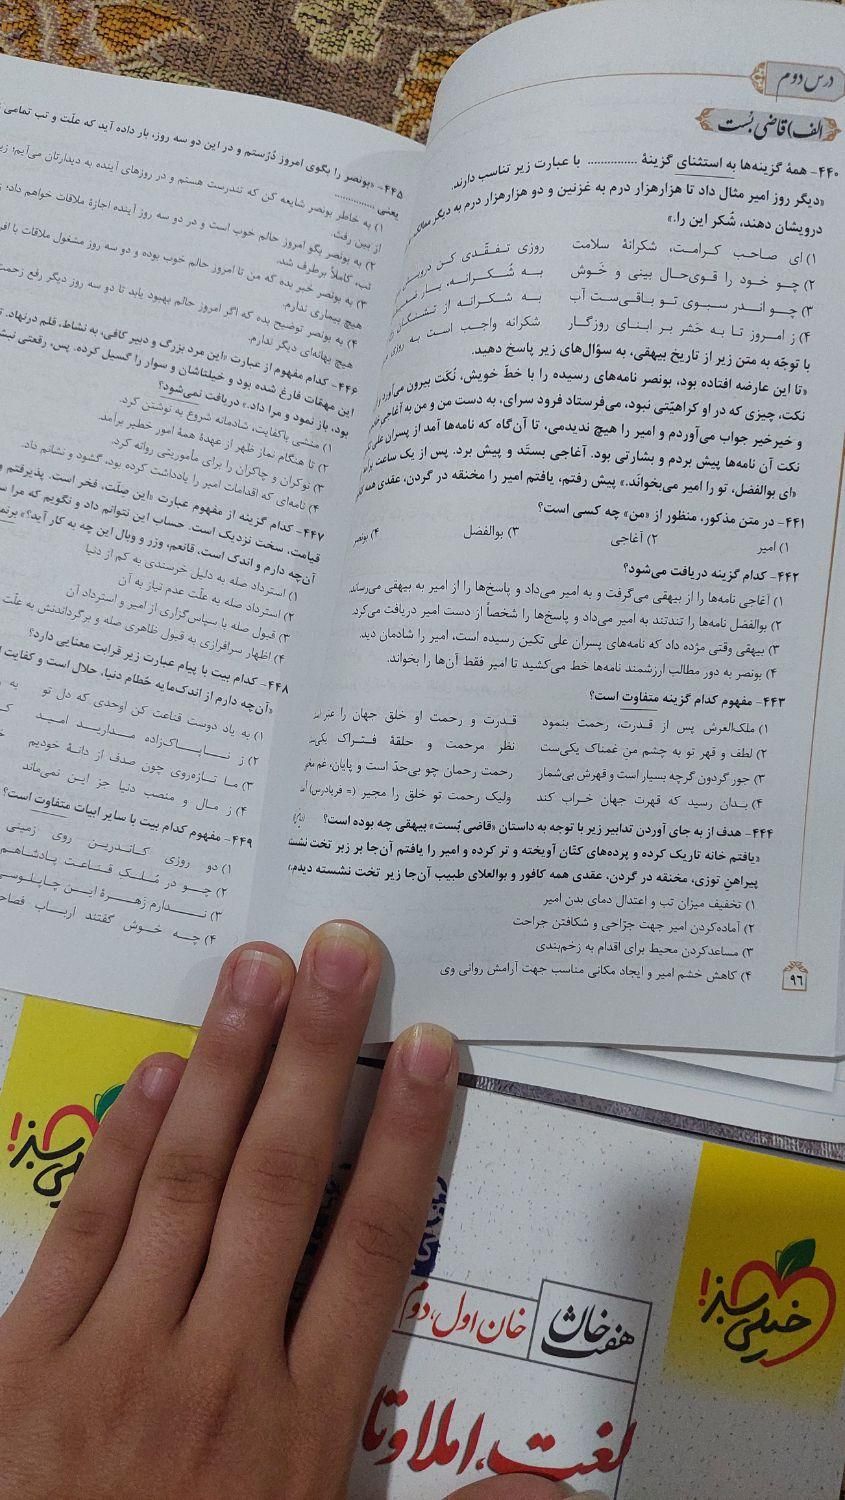 درس دوم
الف) قاضی بُست
۴۴۰- همهٔ گزینه‌ها به استثنای گزینهٔ .............. با عبارت زیر تناسب دارند.
«دیگر روز امیر مثال داد تا هزارهزار درم به غزنین و دو هزارهزار درم به دیگر ممالک
درویشان دهند، شُکر این را.»
۱) ای صاحب کرامت، شکرانهٔ سلامت روزی تفقّدی کن درویش
۲) چو خود را قوی‌حال بینی و خَوش به شُکرانه، بار
۳) چو اندر سبوی تو باقی‌ست آب به شکرانه از تشنگان
۴) ز امروز تا به حَشر بر ابنای روزگار شکرانه واجب است به روزی
با توجّه به متن زیر از تاریخ بیهقی، به سؤال‌های زیر پاسخ دهید.
«تا این عارضه افتاده بود، بونصر نامه‌های رسیده را با خطّ خویش، نُکَت بیرون می‌آورد و
نکت، چیزی که در او کراهیّتی نبود، می‌فرستاد فرود سرای، به دست من و من به آغاجی
و خیرخیر جواب می‌آوردم و امیر را هیچ ندیدمی، تا آن‌گاه که نامه‌ها آمد از پسران علی
نکت آن نامه‌ها پیش بردم و بشارتی بود. آغاجی بستَد و پیش برد. پس از یک ساعت
«ای بوالفضل، تو را امیر می‌بخواند.» پیش رفتم، یافتم امیر را مخنقه در گردن، عقدی همه
۴۴۱- در متن مذکور، منظور از «من» چه کسی است؟
۱) امیر ۲) آغاجی ۳) بوالفضل ۴) بونصر
۴۴۲- کدام گزینه دریافت می‌شود؟
۱) آغاجی نامه‌ها را از بیهقی می‌گرفت و به امیر می‌داد و پاسخ‌ها را از امیر به بیهقی می‌رساند.
۲) بوالفضل نامه‌ها را تندتند به امیر می‌داد و پاسخ‌ها را شخصاً از دست امیر دریافت می‌کرد.
۳) بیهقی وقتی مژده داد که نامه‌های پسران علی تکین رسیده است، امیر را شادمان دید.
۴) بونصر به دور مطالب ارزشمند نامه‌ها خط می‌کشید تا امیر فقط آن‌ها را بخواند.
۴۴۳- مفهوم کدام گزینه متفاوت است؟
۱) ملک‌العرش پس از قدرت، رحمت بنمود قدرت و رحمت او خلق جهان را
۲) لطف و قهر تو به چشم منِ غمناک یکی‌ست نظر مرحمت و حلقهٔ فتراک
۳) جور گردون گرچه بسیار است و قهرش بی‌شمار رحمت رحمان چو بی‌حدّ است و پایان، غم
۴) بدان رسید که قهرت جهان خراب کند ولیک رحمت تو خلق را مجیر (= فریادرس)
۴۴۴- هدف از به جای آوردن تدابیر زیر با توجه به داستان «قاضی بُست» بیهقی چه بوده است؟
«یافتم خانه تاریک کرده و پرده‌های کتّان آویخته و تر کرده و امیر را یافتم آن‌جا بر زبر تخت
پیراهنِ توزی، مخنقه در گردن، عقدی همه کافور و بوالعلای طبیب آن‌جا زیر تخت نشسته دیدم.»
۱) تخفیف میزان تب و اعتدال دمای بدن امیر
۲) آماده‌کردن امیر جهت جرّاحی و شکافتن جراحت
۳) مساعدکردن محیط برای اقدام به زخم‌بندی
۴) کاهش خشم امیر و ایجاد مکانی مناسب جهت آرامش روانی وی
۹۶
۴۴۵- «بونصر را بگوی امروز دُرُستم و در این دو سه روز، بار داده آید که علّت و تب تمامی
یعنی ..............
۱) به خاطر بونصر شایعه کن که تندرست هستم و در روزهای آینده به دیدارتان می‌آیم؛
از بین رفت.
۲) به بونصر بگو امروز حالم خوب است و در دو سه روز آینده اجازهٔ ملاقات خواهم داد؛
تب، کاملاً برطرف شد.
۳) به بونصر خبر بده که من تا امروز حالم خوب بوده و دو سه روز مشغول ملاقات با
هیچ بیماری ندارم.
۴) به بونصر توضیح بده که اگر امروز حالم بهبود یابد تا دو سه روز دیگر رفع زحمت
هیچ بهانه‌ای دیگر ندارم.
۴۴۶- کدام مفهوم از عبارت «این مرد بزرگ و دبیر کافی، به نشاط، قلم درنهاد.
این مهمّات فارغ شده بود و خیلتاشان و سوار را گسیل کرده. پس، رقعتی
بود، باز نمود و مرا داد.» دریافت نمی‌شود؟
۱) منشی باکفایت، شادمانه شروع به نوشتن کرد.
۲) تا هنگام نماز ظهر از عهدهٔ همهٔ امور خطیر برآمد.
۳) نوکران و چاکران را برای مأموریتی روانه کرد.
۴) نامه‌ای که اقدامات امیر را یادداشت کرده بود، گشود و نشانم داد.
۴۴۷- کدام گزینه از مفهوم عبارت «این صِلَت، فخر است. پذیرفتم و
قیامت، سخت نزدیک است. حساب این نتوانم داد و نگویم که مرا
آن‌چه دارم و اندک است، قانعم، وِزر و وبال این چه به کار آید؟»
۱) استرداد صله به دلیل خرسندی به کم از دنیا
۲) استرداد صله به علّت عدم نیاز به آن
۳) قبول صله با سپاس‌گزاری از امیر و استرداد آن
۴) اظهار سرافرازی به قبول ظاهری صله و برگرداندنش به علّت
۴۴۸- کدام بیت با پیام عبارت زیر قرابت معنایی دارد؟
«آن‌چه دارم از اندک‌مایه حُطام دنیا، حلال است و کفایت
۱) به یاد دوست قناعت کن اوحدی که دل تو
۲) ز ناپاک‌زاده مدارید امید
۳) ما تازه‌روی چون صدف از دانهٔ خودیم
۴) ز مال و منصب دنیا جز این نمی‌ماند
۴۴۹- مفهوم کدام بیت با سایر ابیات متفاوت است؟
۱) دو روزی کاندرین روی زمینی
۲) چو در مُلک قناعت پادشاهم
۳) ندارم زهرهٔ این چاپلوسی
۴) چه خوش گفتند ارباب
خیلی سبز!
هفت خان
خان اول، دوم
لغت، املا و تا
خیلی سبز!